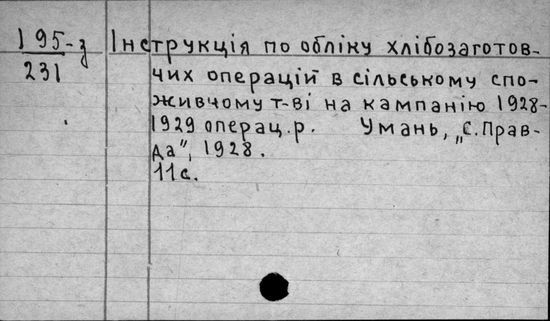 195-з
231
Інструкція по обліку хлібозаготов-
чих операцій в сільському спо-
живчому т-ві на кампанію 1928-
1929 операц. р. Умань, „С. Прав-
да", 1928.
11 с.